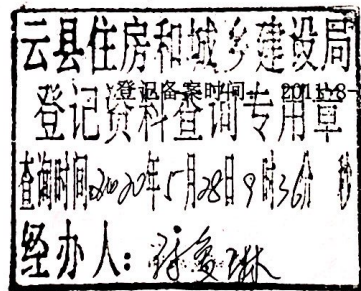 云县住房和城乡建设局
登记备案时间 2011-8-
登记资料查询专用章
查询时间2020年5月28日9时36分 秒
经办人: